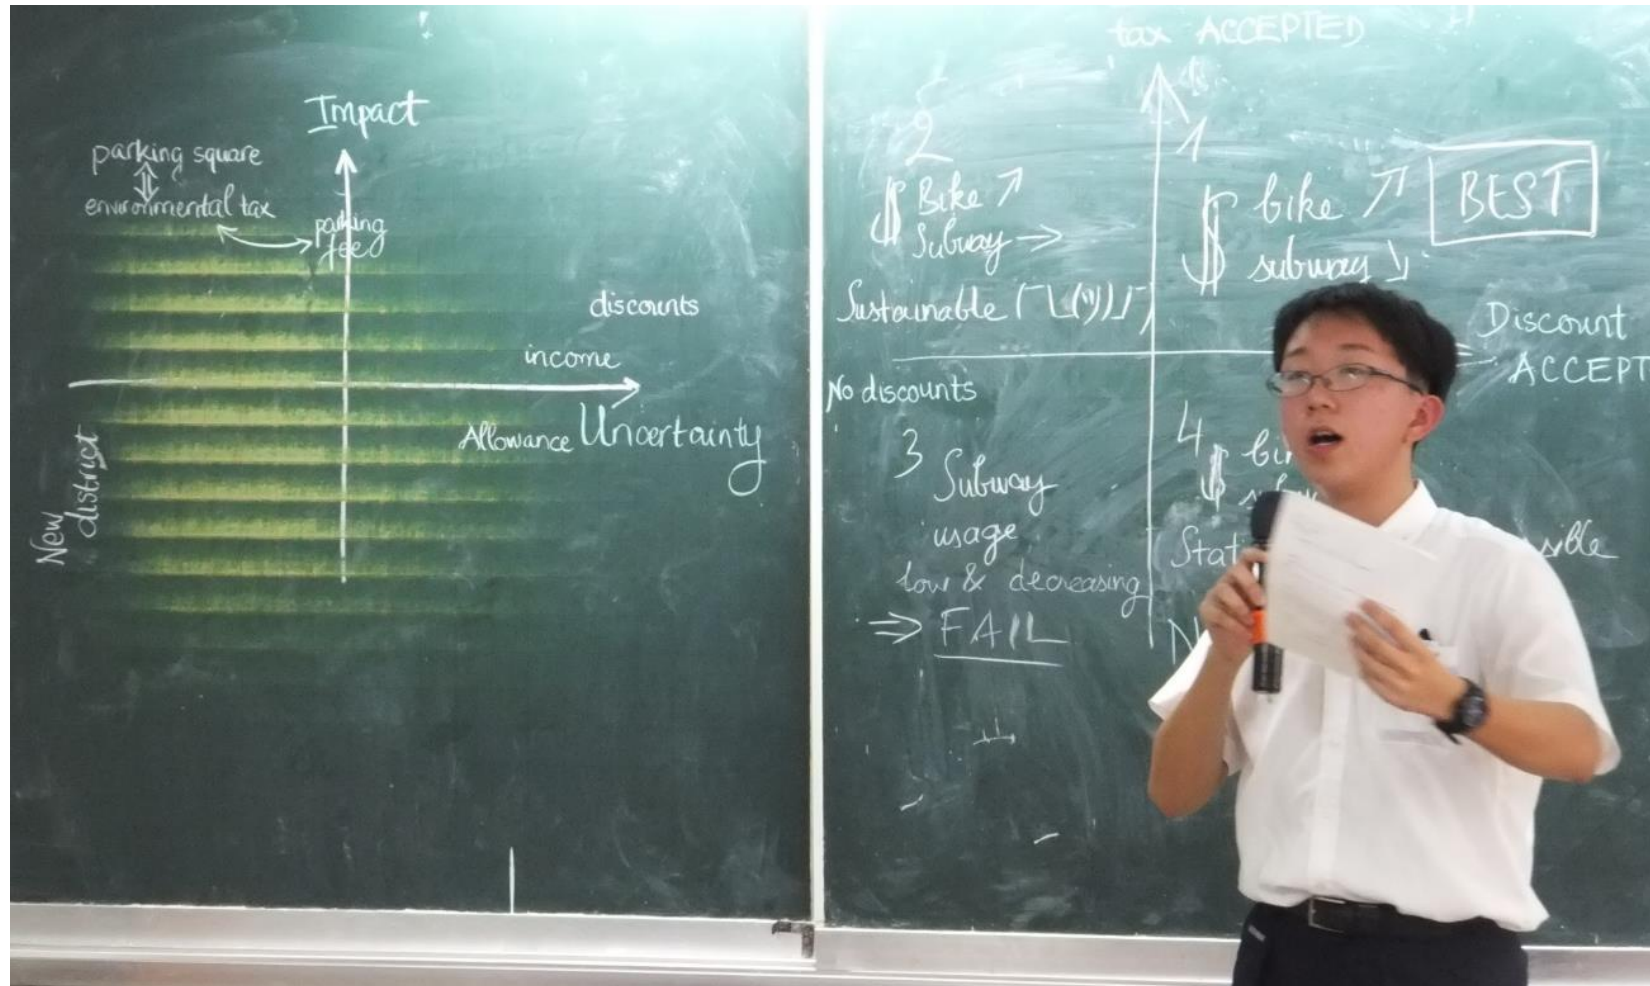 Impact
parking square
environmental tax
parking
fee
discounts
income
Allowance Uncertainty
New
district
tax ACCEPTED
2
$ Bike ↗
Subway →
Sustainable
1
$ bike ↗
subway ↘
BEST
Discount
ACCEPT
No discounts
3
Subway
usage
low & decreasing
⇒ FAIL
4
$
Stat